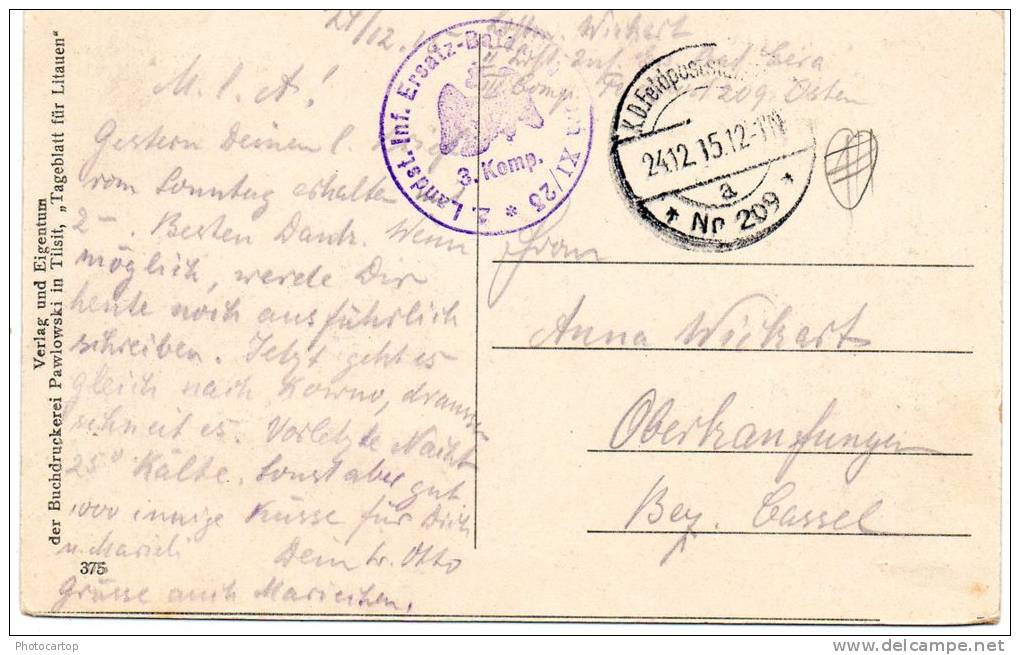 24/12. 15
Wickart
Osten
M. l. A!
Gestern Deinen l.
vom Sonntag erhalten
2 -. Besten Dank. Wenn
möglich, werde Dir
heute noch ausführlich
schreiben. Jetzt geht es
gleich nach Kowno, draussen
schneit es. Vorletzte Nacht
25° Kälte. Sonst aber gut
1000 innige Küsse für Dich
u. Marieli Dein tr. Otto
Grüsse auch Mariechen.
2. Landst.-Inf. Ersatz-Bataillon XI/23 *
3. Komp.
K.D. Feldpost
24.12.15.12-1N
a
* Nr 209 *
Frau
Anna Wickart
Oberkaufungen
Bez. Cassel
Verlag und Eigentum
der Buchdruckerei Pawlowski in Tilsit, „Tageblatt für Litauen"
375
Photocartop
www.delcampe.net